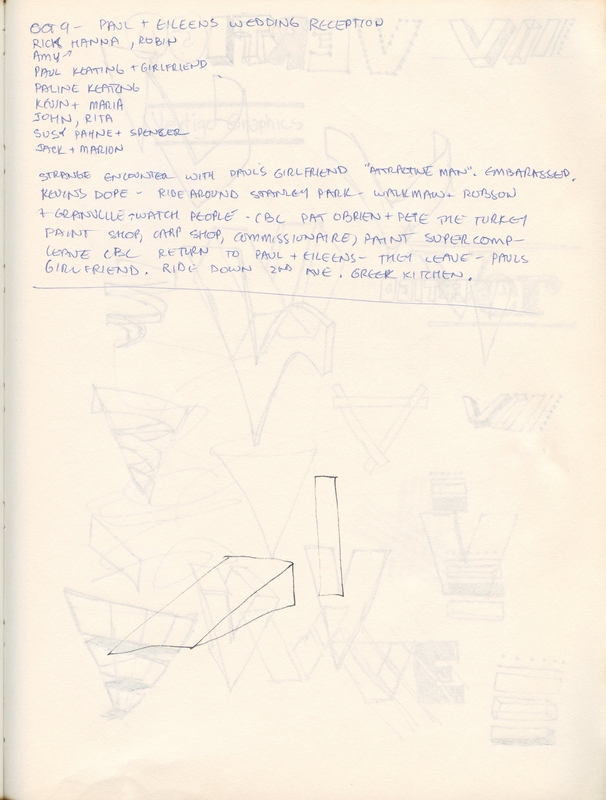 OCT 9 - PAUL + EILEENS WEDDING RECEPTION
RICK HANNA, ROBIN
AMY
PAUL KEATING + GIRLFRIEND
PALINE KEATING
KEVIN + MARIA
JOHN, RITA
SUSY PAYNE + SPENCER
JACK + MARION
STRANGE ENCOUNTER WITH PAUL'S GIRLFRIEND "ATTRACTIVE MAN". EMBARASSED.
KEVINS DOPE - RIDE AROUND STANLEY PARK - WALKMAN + ROBSON
+ GRANVILLE - WATCH PEOPLE - CBC PAT OBRIEN + PETE THE TURKEY
PAINT SHOP, CARP SHOP, COMMISSIONAIRE, PAINT SUPERCOMP -
LEAVE CBC RETURN TO PAUL + EILEENS - THEY LEAVE - PAULS
GIRLFRIEND. RIDE DOWN 2ND AVE. GREEK KITCHEN.